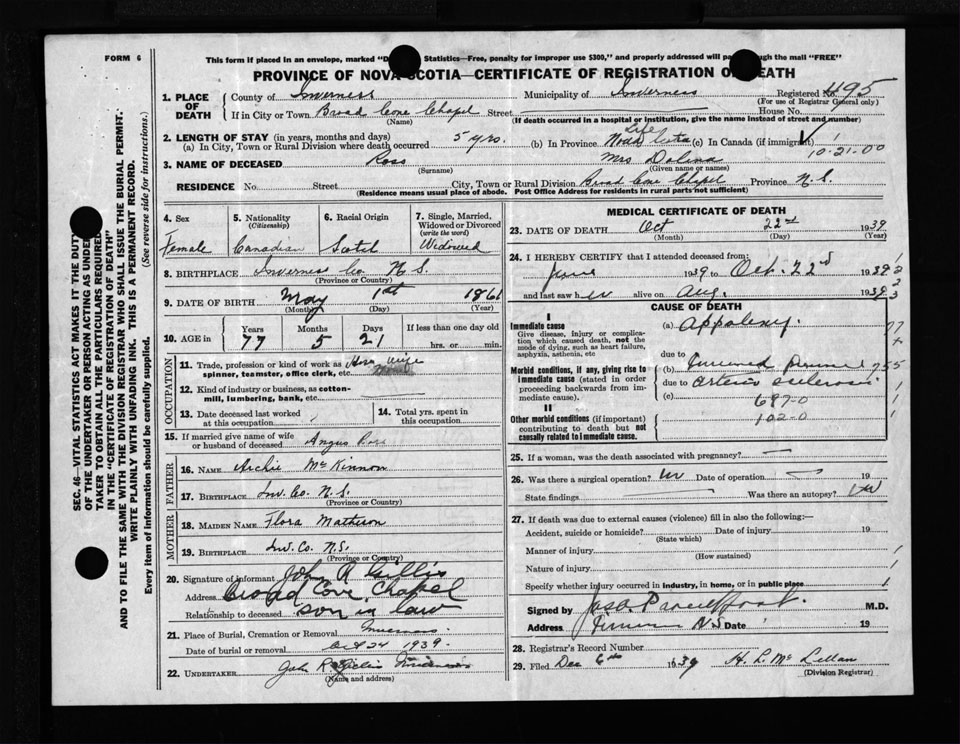 FORM 6
This form if placed in an envelope, marked "D Statistics—Free, penalty for improper use $300," and properly addressed will pa through the mail "FREE"
PROVINCE OF NOVA SCOTIA—CERTIFICATE OF REGISTRATION OF DEATH
1. PLACE OF DEATH
County of Inverness Municipality of Inverness Registered No. 4195
(For use of Registrar General only)
If in City or Town Broad Cove Chapel Street House No.
(Name) (If death occurred in a hospital or institution, give the name instead of street and number)
2. LENGTH OF STAY (in years, months and days)
(a) In City, Town or Rural Division where death occurred 5 yrs. (b) In Province Life (c) In Canada (if immigrant)
10-21-00
3. NAME OF DECEASED Ross Mrs Dolina
(Surname) (Given name or names)
RESIDENCE No. Street City, Town or Rural Division Broad Cove Chapel Province N.S.
(Residence means usual place of abode. Post Office Address for residents in rural parts not sufficient)
4. Sex
Female
5. Nationality
(Citizenship)
Canadian
6. Racial Origin
Scotch
7. Single, Married, Widowed or Divorced
(write the word)
Widowed
8. BIRTHPLACE Inverness Co. N.S.
(Province or Country)
9. DATE OF BIRTH May 1st 1861
(Month) (Day) (Year)
10. AGE in
Years Months Days If less than one day old
77 5 21 hrs. or min.
OCCUPATION
11. Trade, profession or kind of work as spinner, teamster, office clerk, etc. wife
12. Kind of industry or business, as cotton-mill, lumbering, bank, etc.
13. Date deceased last worked at this occupation
14. Total yrs. spent in this occupation
15. If married give name of wife or husband of deceased Angus Ross
FATHER
16. NAME Archie McKinnon
17. BIRTHPLACE Inv. Co. N.S.
(Province or Country)
MOTHER
18. MAIDEN NAME Flora Matheson
19. BIRTHPLACE Inv. Co. N.S.
(Province or Country)
20. Signature of informant John R Gillis
Address Broad Cove Chapel
Relationship to deceased son in law
21. Place of Burial, Cremation or Removal Inverness.
Date of burial or removal Oct 24 1939.
22. UNDERTAKER John R Gillis Inverness
(Name and address)
MEDICAL CERTIFICATE OF DEATH
23. DATE OF DEATH Oct 22nd 1939
(Month) (Day) (Year)
24. I HEREBY CERTIFY that I attended deceased from:
June 1939 to Oct. 22nd 1939
and last saw her alive on Aug. 1939
CAUSE OF DEATH
I
Immediate cause
Give disease, injury or complication which caused death, not the mode of dying, such as heart failure, asphyxia, asthenia, etc
(a) Appolexy.
due to
Morbid conditions, if any, giving rise to immediate cause (stated in order proceeding backwards from immediate cause).
(b)
due to Arterio sclerosis
(c) 687-0
102-0
II
Other morbid conditions (if important) contributing to death but not causally related to immediate cause.
25. If a woman, was the death associated with pregnancy?
26. Was there a surgical operation? Date of operation 19
State findings Was there an autopsy?
27. If death was due to external causes (violence) fill in also the following:—
Accident, suicide or homicide? Date of injury 19
(State which)
Manner of injury
(How sustained)
Nature of injury
Specify whether injury occurred in industry, in home, or in public place
Signed by M.D.
Address N S Date 19
28. Registrar's Record Number
29. Filed Dec 6th 1939 H. L. McLellan
(Division Registrar)
SEC. 46—VITAL STATISTICS ACT MAKES IT THE DUTY
OF THE UNDERTAKER OR PERSON ACTING AS UNDER
TAKER TO OBTAIN ALL THE PARTICULARS REQUIRED
IN THE "CERTIFICATE OF REGISTRATION OF DEATH"
AND TO FILE THE SAME WITH THE DIVISION REGISTRAR WHO SHALL ISSUE THE BURIAL PERMIT.
WRITE PLAINLY WITH UNFADING INK. THIS IS A PERMANENT RECORD.
Every item of information should be carefully supplied. (See reverse side for instructions.)